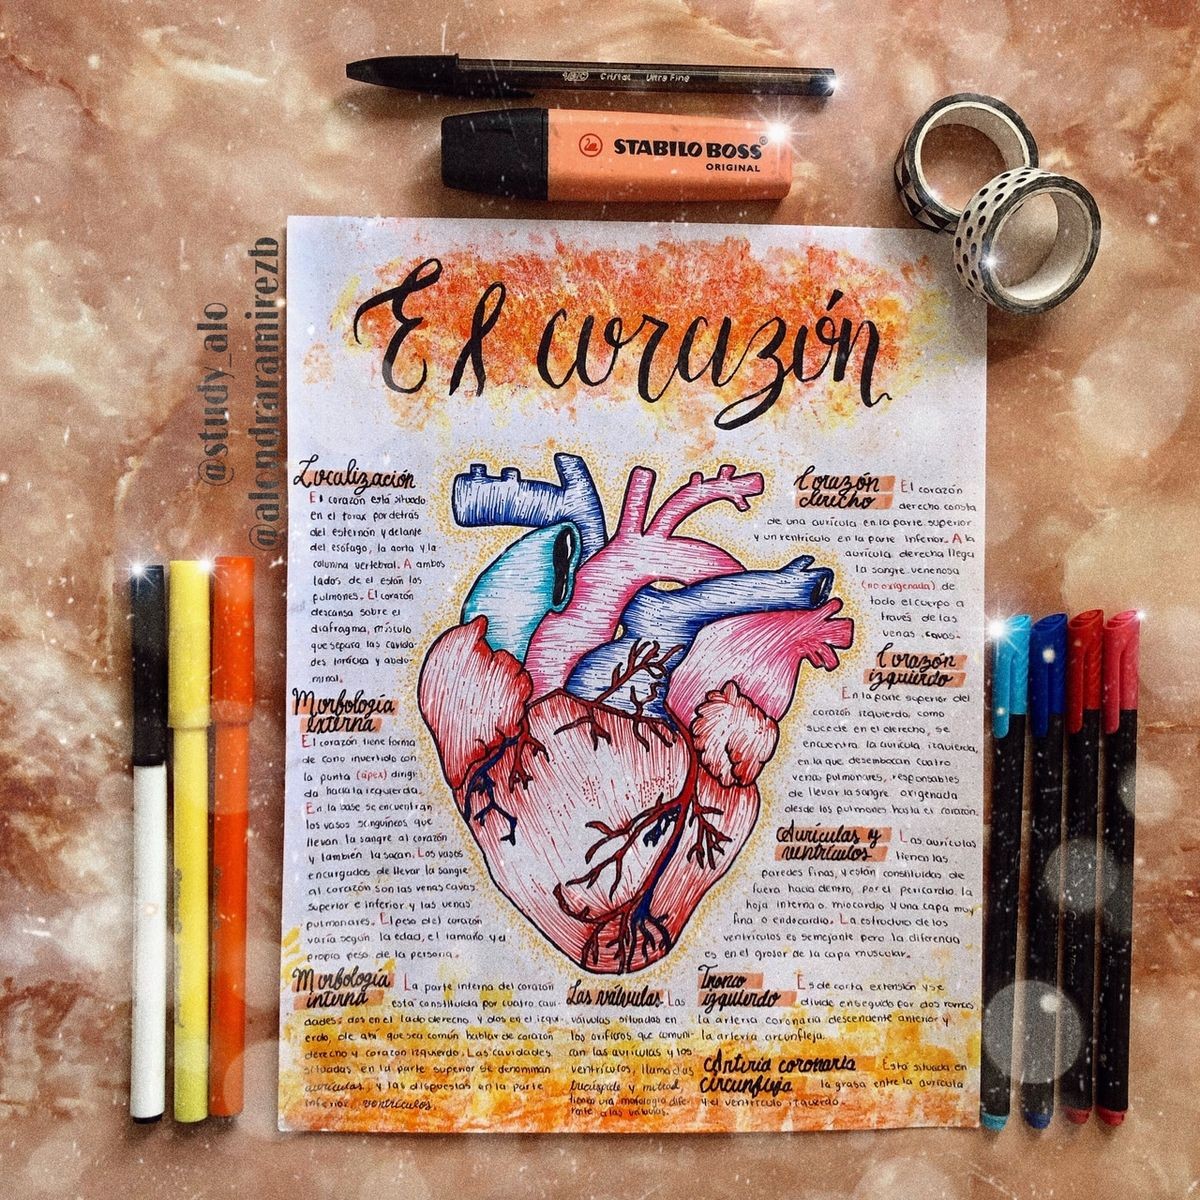 BIC Cristal Ultra Fine
STABILO BOSS
ORIGINAL
@study_alo
@alendraramirezb
El corazón
Localización
El corazón está situado
en el torax por detrás
del esternón y delante
del esofago, la aorta y la
columna vertebral. A ambos
lados de el están los
pulmones. El corazón
descansa sobre el
diafragma, músculo
que separa las cavida-
des torácica y abdo-
minal.
Morfología
externa
El corazón tiene forma
de cono invertido con
la punta (ápex) dirigi-
da hacia la izquierda.
En la base se encuentran
los vasos sanguíneos que
llevan la sangre al corazón
y también la sacan. Los vasos
encargados de llevar la sangre
al corazón son las venas cavas
superior e inferior y las venas
pulmonares. El peso del corazón
varía según la edad, el tamaño y el
propio peso de la persona.
Morfología
interna
La parte interna del corazón
está constituida por cuatro cavi-
dades: dos en el lado derecho y dos en el izqui-
erdo, de ahí que sea común hablar de corazón
derecho y corazón izquierdo. Las cavidades
situadas en la parte superior se denominan
aurículas, y las dispuestas en la parte
inferior, ventrículos.
Corazón
derecho
El corazón
derecho consta
de una aurícula en la parte superior
y un ventrículo en la parte inferior. A la
aurícula derecha llega
la sangre venenosa
(no oxigenada) de
todo el cuerpo a
través de las
venas cavas.
Corazón
izquierdo
En la parte superior del
corazón izquierdo, como
sucede en el derecho, se
encuentra la aurícula izquierda,
en la que desembocan cuatro
venas pulmonares, responsables
de llevar la sangre oxigenada
desde los pulmones hasta el corazón.
Aurículas y
ventrículos
Las aurículas
tienen las
paredes finas, y están constituidas de
fuera hacia dentro, por el pericardio, la
hoja interna o miocardio y una capa muy
fina o endocardio. La estructura de los
ventrículos es semejante pero la diferencia
es en el grosor de la capa muscular.
Las válvulas Las
válvulas situadas en
los orificios que comuni-
can las aurículas y los
ventrículos, llamadas
tricúspide y mitral,
tienen una morfología dife-
rente a las válvulas.
Tronco
izquierdo
Es de corta extensión y se
divide enseguida por dos ramas
la arteria coronaria descendente anterior y
la arteria circunfleja.
Arteria coronaria
circunfleja
Está situada en
la grasa entre la aurícula
y el ventrículo izquierdo.